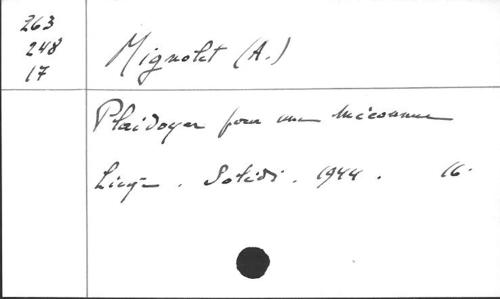 263
248
17
Mignolet (A.)
Plaidoyer pour une méconnue
Liège. Solédi. 1944. 16.